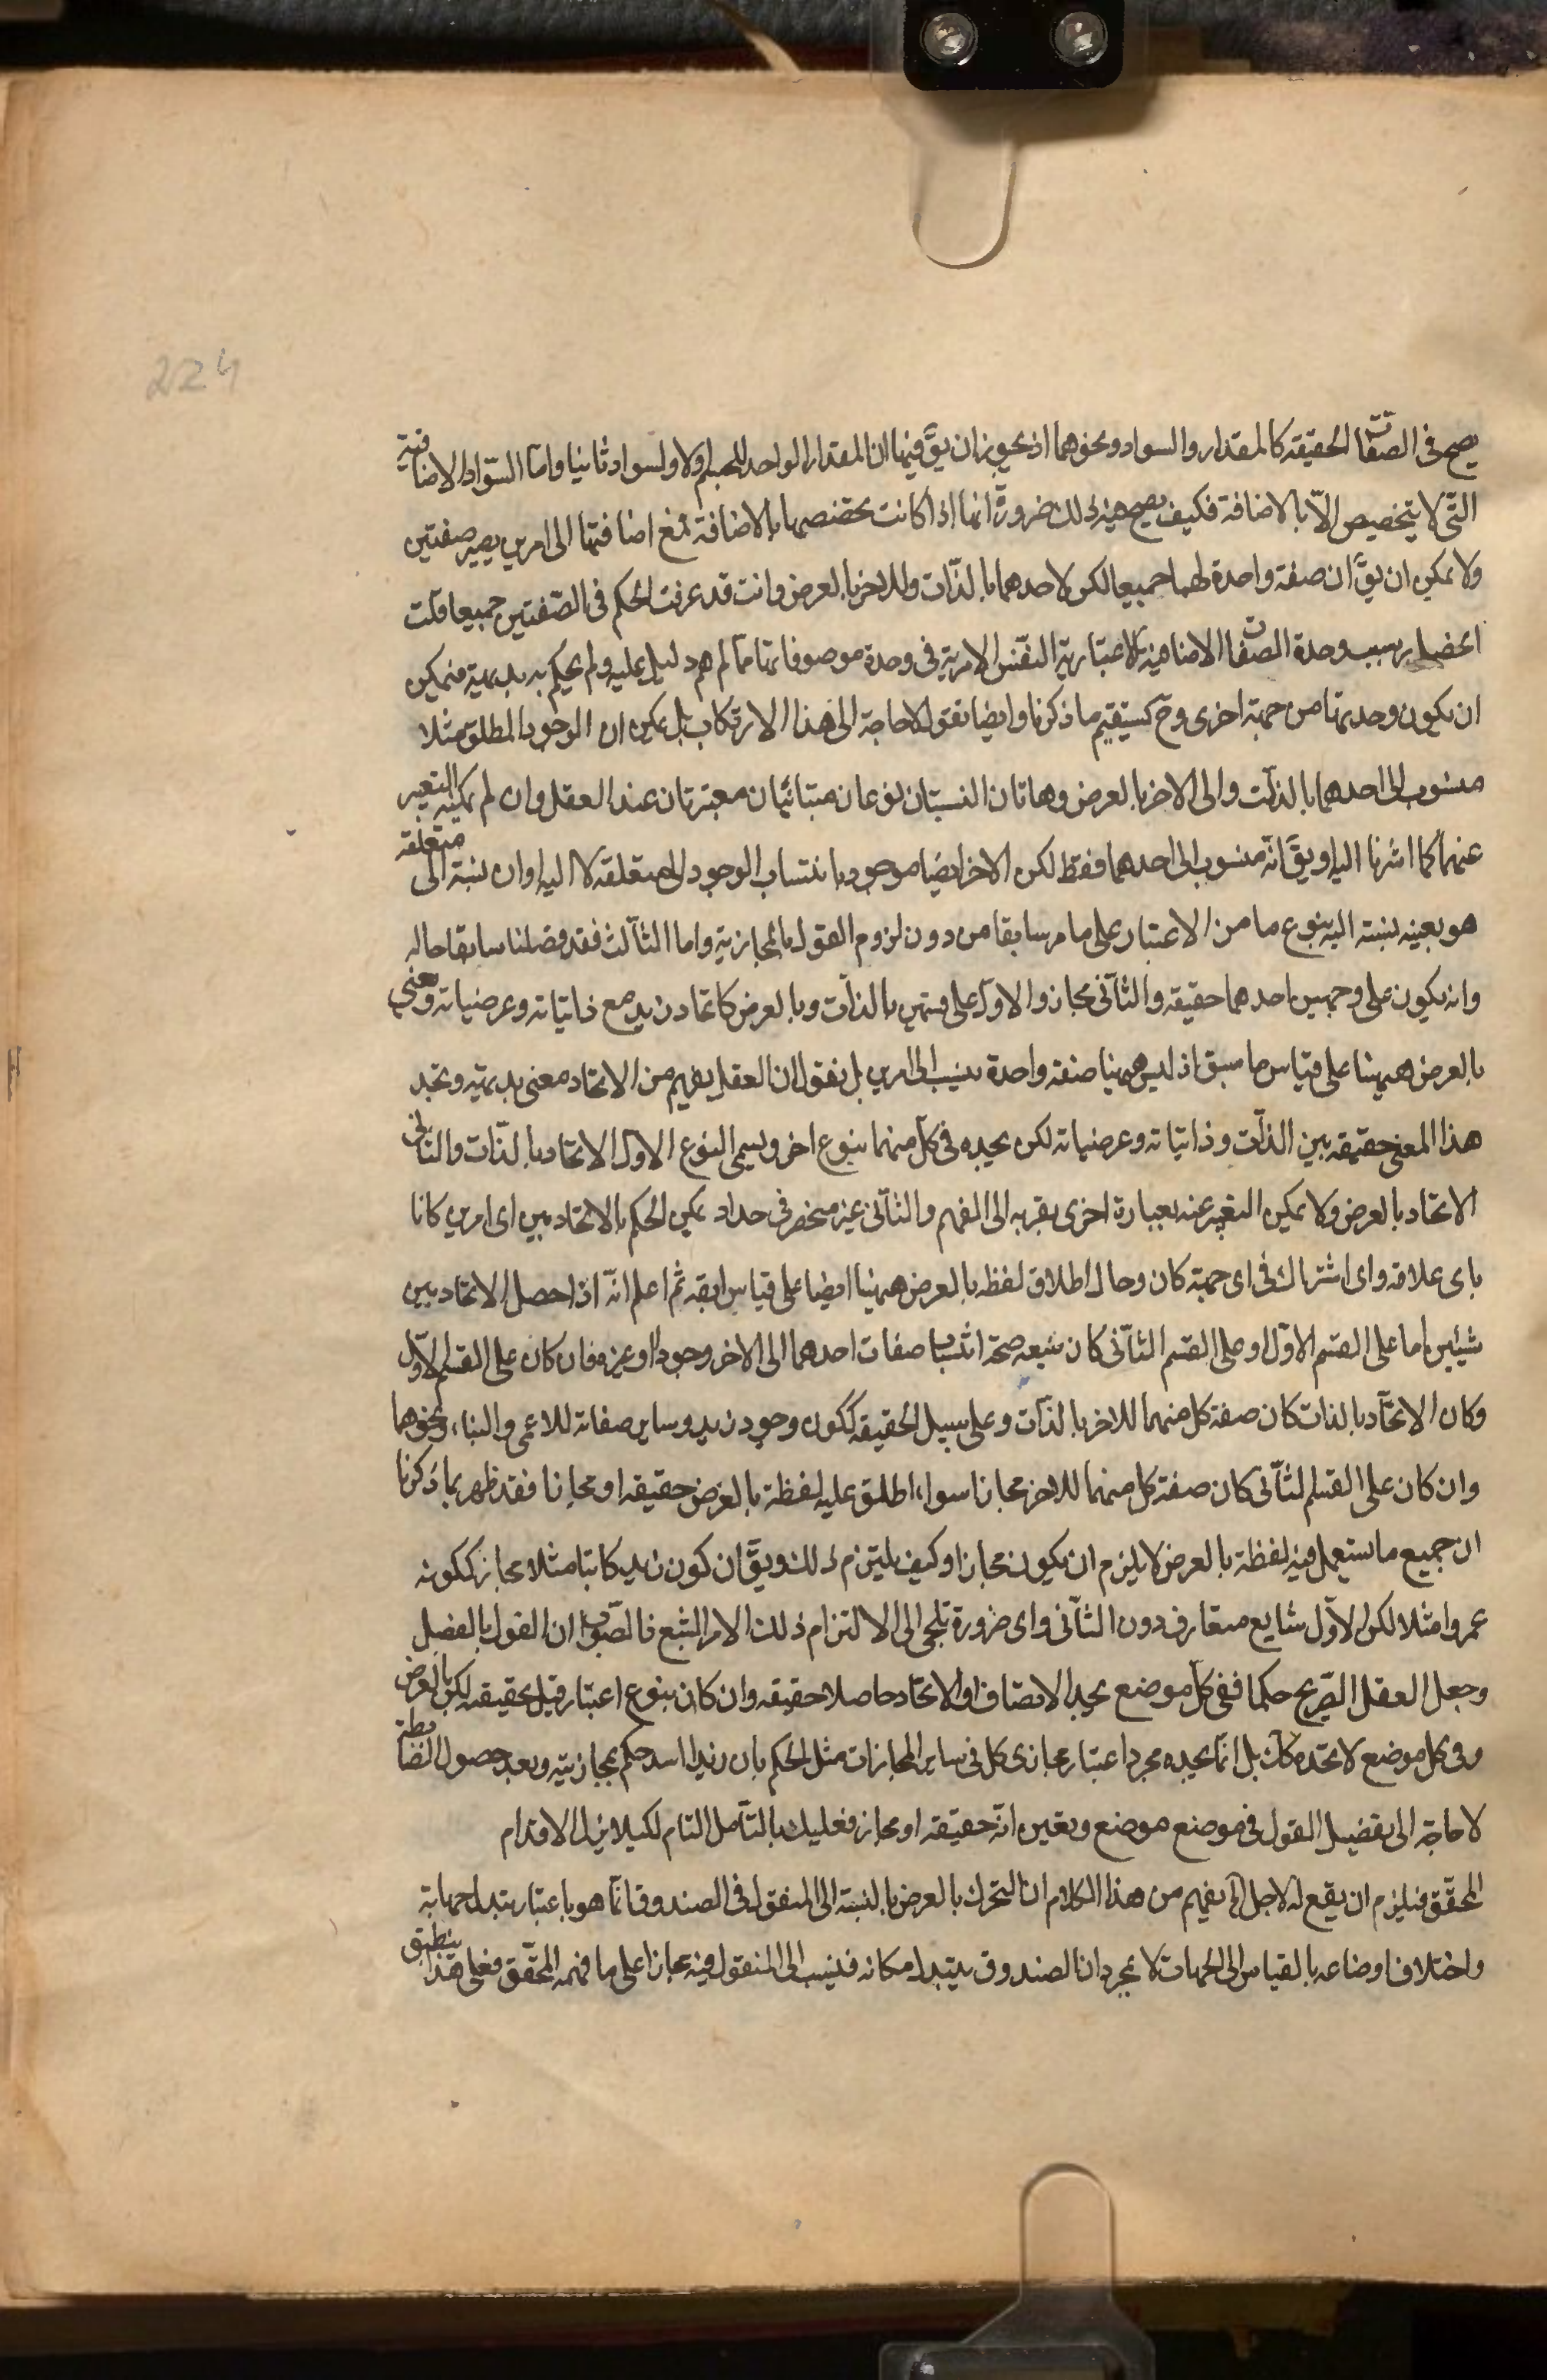 224
يصح فى الصفات الحقيقه كالمقدار والسواد ونحوهما اذ يجوز ان يقّ فيها ان المقدار الواحد للجسم اولا ولسواد ثانيا واما السّواد الاضافية
التّى لا يتخصيص الّا بالاضافة فكيف يصح فيه ذلك ضرورة انها اذا كانت تخصصها بالاضافة فمع اضافتها الى امرين يصير صفتين
ولا يمكن ان يقّ ان صفة واحدة لهما جميعا لكن لاحدهما بالذّات وللاخر بالعرض وانت قد عرفت الحكم فى الصّفتين جميعا قلت
سبب وحدة الصفات الاضافية الاعتبارية النفس الامرية فى وحدة موصوفاتها مما لم دليل عليه ولم يحكم به بديهية فيمكن
ان يكون وحدتها من جهة اخرى وح يستقيم ما ذكرنا وايضا نقول لا حاجة الى هذا الارتكاب بل يمكن ان الوجود المطلق مثلا
منسوب الى احدهما بالذات والى الاخر بالعرض وهاتان النسبتان نوعان متبائنان معتبرتان عند العقل وان لم يمكن التعبير
عنهما كما اشرنا اليه او يقّ انّه منسوب الى احدهما فقط لكن الاخر ايضا موجود بانتساب الوجود الى متعلقه لا اليه او ان نسبة الى متعلقه
هو بعينه نسبته اليه بنوع ما من الاعتبار على ما مر سابقا من دون لزوم القول بالمجازية واما الثالث فقد فصلنا سابقا حاله
وانه يكون على وجهين احدهما حقيقه والثانى مجاز والاول على قسمين بالذات وبالعرض كاتحاد زيد مع ذاتياته وعرضياته ومعنى
بالعرض هيهنا على قياس ما سبق اذ ليس هيهنا صفة واحدة ينسب الى امرين بل نقول ان العقل يفهم من الاتحاد معنى بديهية ويجد
هذا المعنى حقيقه بين الذات وذاتياته وعرضياته لكن يجده فى كل منهما بنوع اخر ويسمى النوع الاول الاتحاد بالذّات والثانى
الاتحاد بالعرض ولا يمكن التعبير عنه بعبارة اخرى يقربه الى الفهم والثانى غير منحصر فى حد اذ يمكن الحكم بالاتحاد بين اى امرين كانا
باى علاقة واى اشتراك فى اى جهة كان وحال اطلاق لفظه بالعرض هيهنا ايضا على قياس سابقه ثم اعلم انّه اذا حصل الاتحاد بين
شيئين اما على القسم الاوّل او على القسم الثانى كان يتبعه صحة انتساب صفات احدهما الى الاخر وجودا او غيره فان كان على القسم الاوّل
وكان الاتحاد بالذات كان صفة كل منهما للاخر بالذات وعلى سبيل الحقيقه ككون وجود زيد وساير صفاته للاعمى والبناء ونحوهما
وان كان على القسم الثانى كان صفة كل منهما للاخر مجازا سواء اطلق عليه لفظة بالعرض حقيقه او مجازا فقد ظهر بما ذكرنا
ان جميع ما يستعمل فيه لفظة بالعرض لا يلزم ان يكون مجازا وكيف يلتزم ذلك ويقّ ان كون زيد كاتبا مثلا مجاز ككونه
عمروا مثلا لكن الاوّل شايع متعارف دون الثانى واى ضرورة تلجى الى الالتزام ذلك الامر الشبع فالصّواب ان القول بالفصل
وجعل العقل الصّريح حكما ففى كل موضع يجد الاتصاف او الاتحاد حاصلا حقيقه وان كان بنوع اعتبار قيل بحقيقته لكن بالعرض
وفى كل موضع لا تجده كك بل انما يجده مجرد اعتبار مجازى كل فى ساير المجازات مثل الحكم بان زيدا اسد حكم بمجازيته وبعد حصول الضابطة
لا حاجة الى تفصيل القول فى موضع موضع وتعيين انّه حقيقه او مجاز فعليك بالتأمل التام لكيلا يزل الاقدام
المحقّق فيلزم ان يقع له لاجل يفهم من هذا الكلام ان التحرك بالعرض بالنسبة الى المنقول فى الصندوق انما هو باعتبار تبدل جهاته
واختلاف اوضاعه بالقياس الى الجهات لا بمجرد ان الصندوق يتبدل مكانه فينسب الى المنقول فيه مجازا على ما فهمه المحقّق فعلى هذا ينطبق